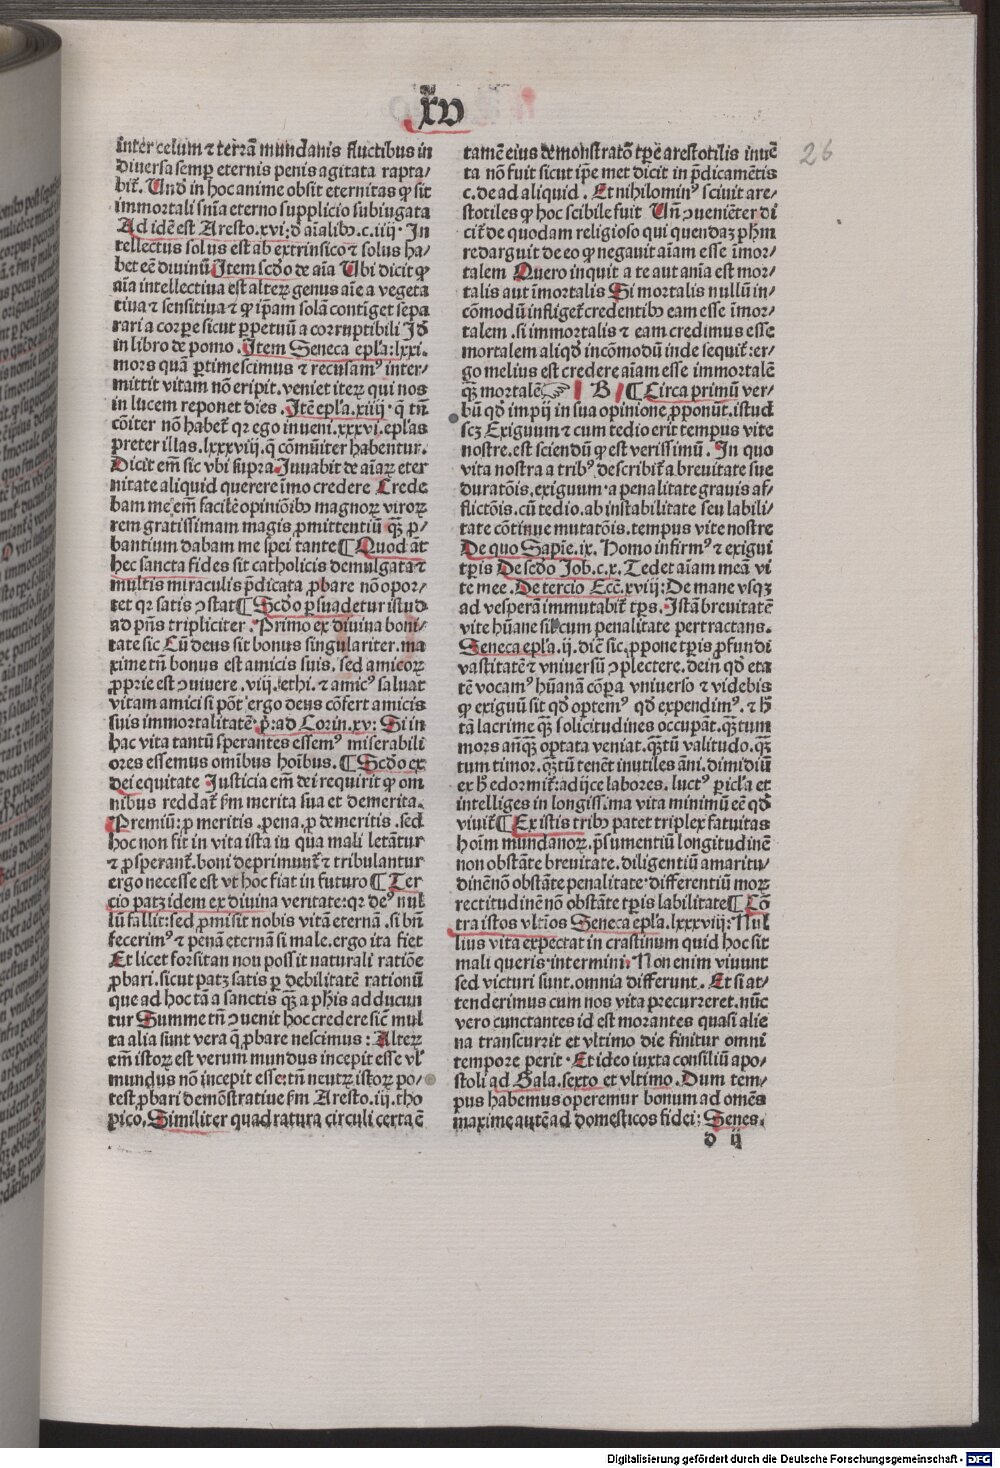 xv
26
inter celum ⁊ terrā mundanis fluctibus in
diuersa semꝑ eternis penis agitata rapta/
bit᷑. Vnđ in hoc anime obsit eternitas ꝙ sit
immortali sn̄ia eterno supplicio subiugata
Ad idē est Aresto.xvi: đ aīalibꝰ.c.iiij. In
tellectus solus est ab extrinsico ⁊ solus ha/
bet eē diuinū Item scđo de aīa Vbi dicit ꝙ
aīa intellectiua est alterꝝ genus aīe a vegeta
tiua ⁊ sensitiua ⁊ ꝙ ip̄am solā contīget sepa
rari a corꝑe sicut ꝑpetuū a corruptibili Iđ
in libro de pomo. Item Seneca epl̄a:lxxi.
mors quā ꝑtimescimus ⁊ recusamꝰ inter/
mittit vitam nō eripit. veniet iterꝝ qui nos
in lucem reponet dies. Itē epl̄a.xiiij. q̄ tn̄
cōiter nō habet᷑ qꝛ ego inueni.xxxvi.epl̄as
preter illas.lxxxviij.q̄ cōmūiter habentur.
Dicit em̄ sic vbi supra. Iuuabit de aīaꝝ eter
nitate aliquid querere īmo credere Crede
bam me em̄ facile opiniōibꝰ magnoꝝ viroꝝ
rem gratissimam magis ꝓmittentiū qꝫ̄ ꝓ/
bantium dabam me spei tante ¶ Quod at̄
hec sancta fides sit catholicis demulgata ⁊
multis miraculis p̄dicata ꝓbare nō opor/
tet qꝛ satis ↄstat ¶ Scđo ꝑsuadetur istud
ad pn̄s tripliciter. Primo ex diuina boni/
tate sic Cū deus sit bonus singulariter. ma
xime tn̄ bonus est amicis suis. sed amicoꝝ
ꝓprie est ↄuiuere.viij.ethi. ⁊ amicꝰ saluat
vitam amici si pōt ergo deus cōfert amicis
suis immortalitatē. p̄: ad Corin.xv: Si in
hac vita tantū sperantes essemꝰ miserabili
ores essemus omībus hoībus. ¶ Scđo ex
dei equitate Iusticia em̄ dei requirit ꝙ om
nibus reddat᷑ fm merita sua et demerita.
Premiū: ꝓ meritis. pena. ꝓ demeritis. sed
hoc non fit in vita ista in qua mali letātur
⁊ ꝓsperant᷑. boni deprimunt᷑ ⁊ tribulantur
ergo necesse est vt hoc fiat in futuro ¶ Ter
cio patꝫ idem ex diuina veritate: qꝛ deꝰ nul
lū fallit: sed ꝓmisit nobis vitā eternā. si bn̄
fecerimꝰ ⁊ penā eternā si male. ergo ita fiet
Et licet forsitan non possit naturali ratiōe
ꝓbari. sicut patꝫ satis ꝑ debilitatē rationū
que ad hoc tā a sanctis qꝫ̄ a ph̄is adducun
tur Summe tn̄ ↄuenit hoc credere sicē mul
ta alia sunt vera q̄ ꝓbare nescimus: Alterꝝ
em̄ istoꝝ est verum mundus incepit esse vl̄
mundus nō incepit esse: tn̄ neutꝝ istoꝝ po/
test ꝓbari demōstratiue fm Aresto.iij.tho
pico. Similiter quadratura circuli certa ē
tamē eius demonstratō tꝑe arestotilis inuē
ta nō fuit sicut ip̄e met dicit in p̄dicamētis
c. de ad aliquid. Et nihilominꝰ sciuit are/
stotiles ꝙ hoc scibile fuit Vn̄ ↄueniēter di
cit᷑ de quodam religioso qui quendaꝫ phm̄
redarguit de eo ꝙ negauit aīam esse īmor/
talem Quero inquit a te aut anīa est mor/
talis aut īmortalis Si mortalis nullū in/
cōmodū infliget᷑ credentibꝰ eam esse īmor/
talem. si immortalis ⁊ eam credimus esse
mortalem aliqđ incōmodū inde sequit᷑: er/
go melius est credere aīam esse immortalē
qꝫ̄ mortalē ☞ B ¶ Circa primū ver/
bū qđ impij in sua opinione ꝓponūt. istud
scꝫ Exiguum ⁊ cum tedio erit tempus vite
nostre. est sciendū ꝙ est verissimū. In quo
vita nostra a tribꝰ describit᷑ a breuitate sue
duratōis. exiguum. a penalitate grauis af/
flictōis. cū tedio. ab instabilitate seu labili/
tate cōtinue mutatōis. tempus vite nostre
De quo Sapīe.ix. Homo infirmꝰ ⁊ exigui
tꝑis De scđo Iob.c.x. Tedet aīam meā vi
te mee. De tercio Ecc̄.xviij: De mane vsqꝫ
ad vesperā immutabit᷑ tp̄s. Istā breuitatē
vite hūane sil cum penalitate pertractans.
Seneca epl̄a.ij. dic̄ sic. ꝓpone tꝑis ꝓfundi
vastitatē ⁊ vniuersū ↄplectere. dein qđ eta
tē vocamꝰ hūanā cōꝑa vniuerso ⁊ videbis
ꝙ exiguū sit qđ optemꝰ qđ expendimꝰ. ⁊ h᷑
tā lacrime qꝫ̄ solicitudines occupāt. qꝫ̄tum
mors anq̄ꝫ optata veniat. qꝫ̄tū valitudo. qꝫ̄
tum timor. qꝫ̄tū tenēt inutiles āni. dimidiū
ex h᷑ edormit᷑: adijce labores. luctꝰ picl̄a et
intelliges in longissima vita minimū eē qđ
viuit᷑ ¶ Ex istis tribꝰ patet triplex fatuitas
hoīm mundanoꝝ. p̄sumentiū longitudinē
non obstāte breuitate. diligentiū amaritu/
dinē nō obstāte penalitate. differentiū morꝝ
rectitudinē nō obstāte tꝑis labilitate ¶ Cō
tra istos vltīos Seneca epl̄a.lxxxviij: Nul
lius vita expectat in crastinum quid hoc sit
mali queris intermini. Non enim viuunt
sed victuri sunt. omnia differunt. Et si at/
tenderimus cum nos vita p̄curreret. nūc
vero cunctantes id est morantes quasi alie
na transcurrit et vltimo die finitur omni
tempore perit. Et ideo iuxta consiliū apo/
stoli ad Gala.sexto et vltimo. Dum tem/
pus habemus operemur bonum ad omēs
maxime autē ad domesticos fidei; Senes.
d ij
Digitalisierung gefördert durch die Deutsche Forschungsgemeinschaft - DFG